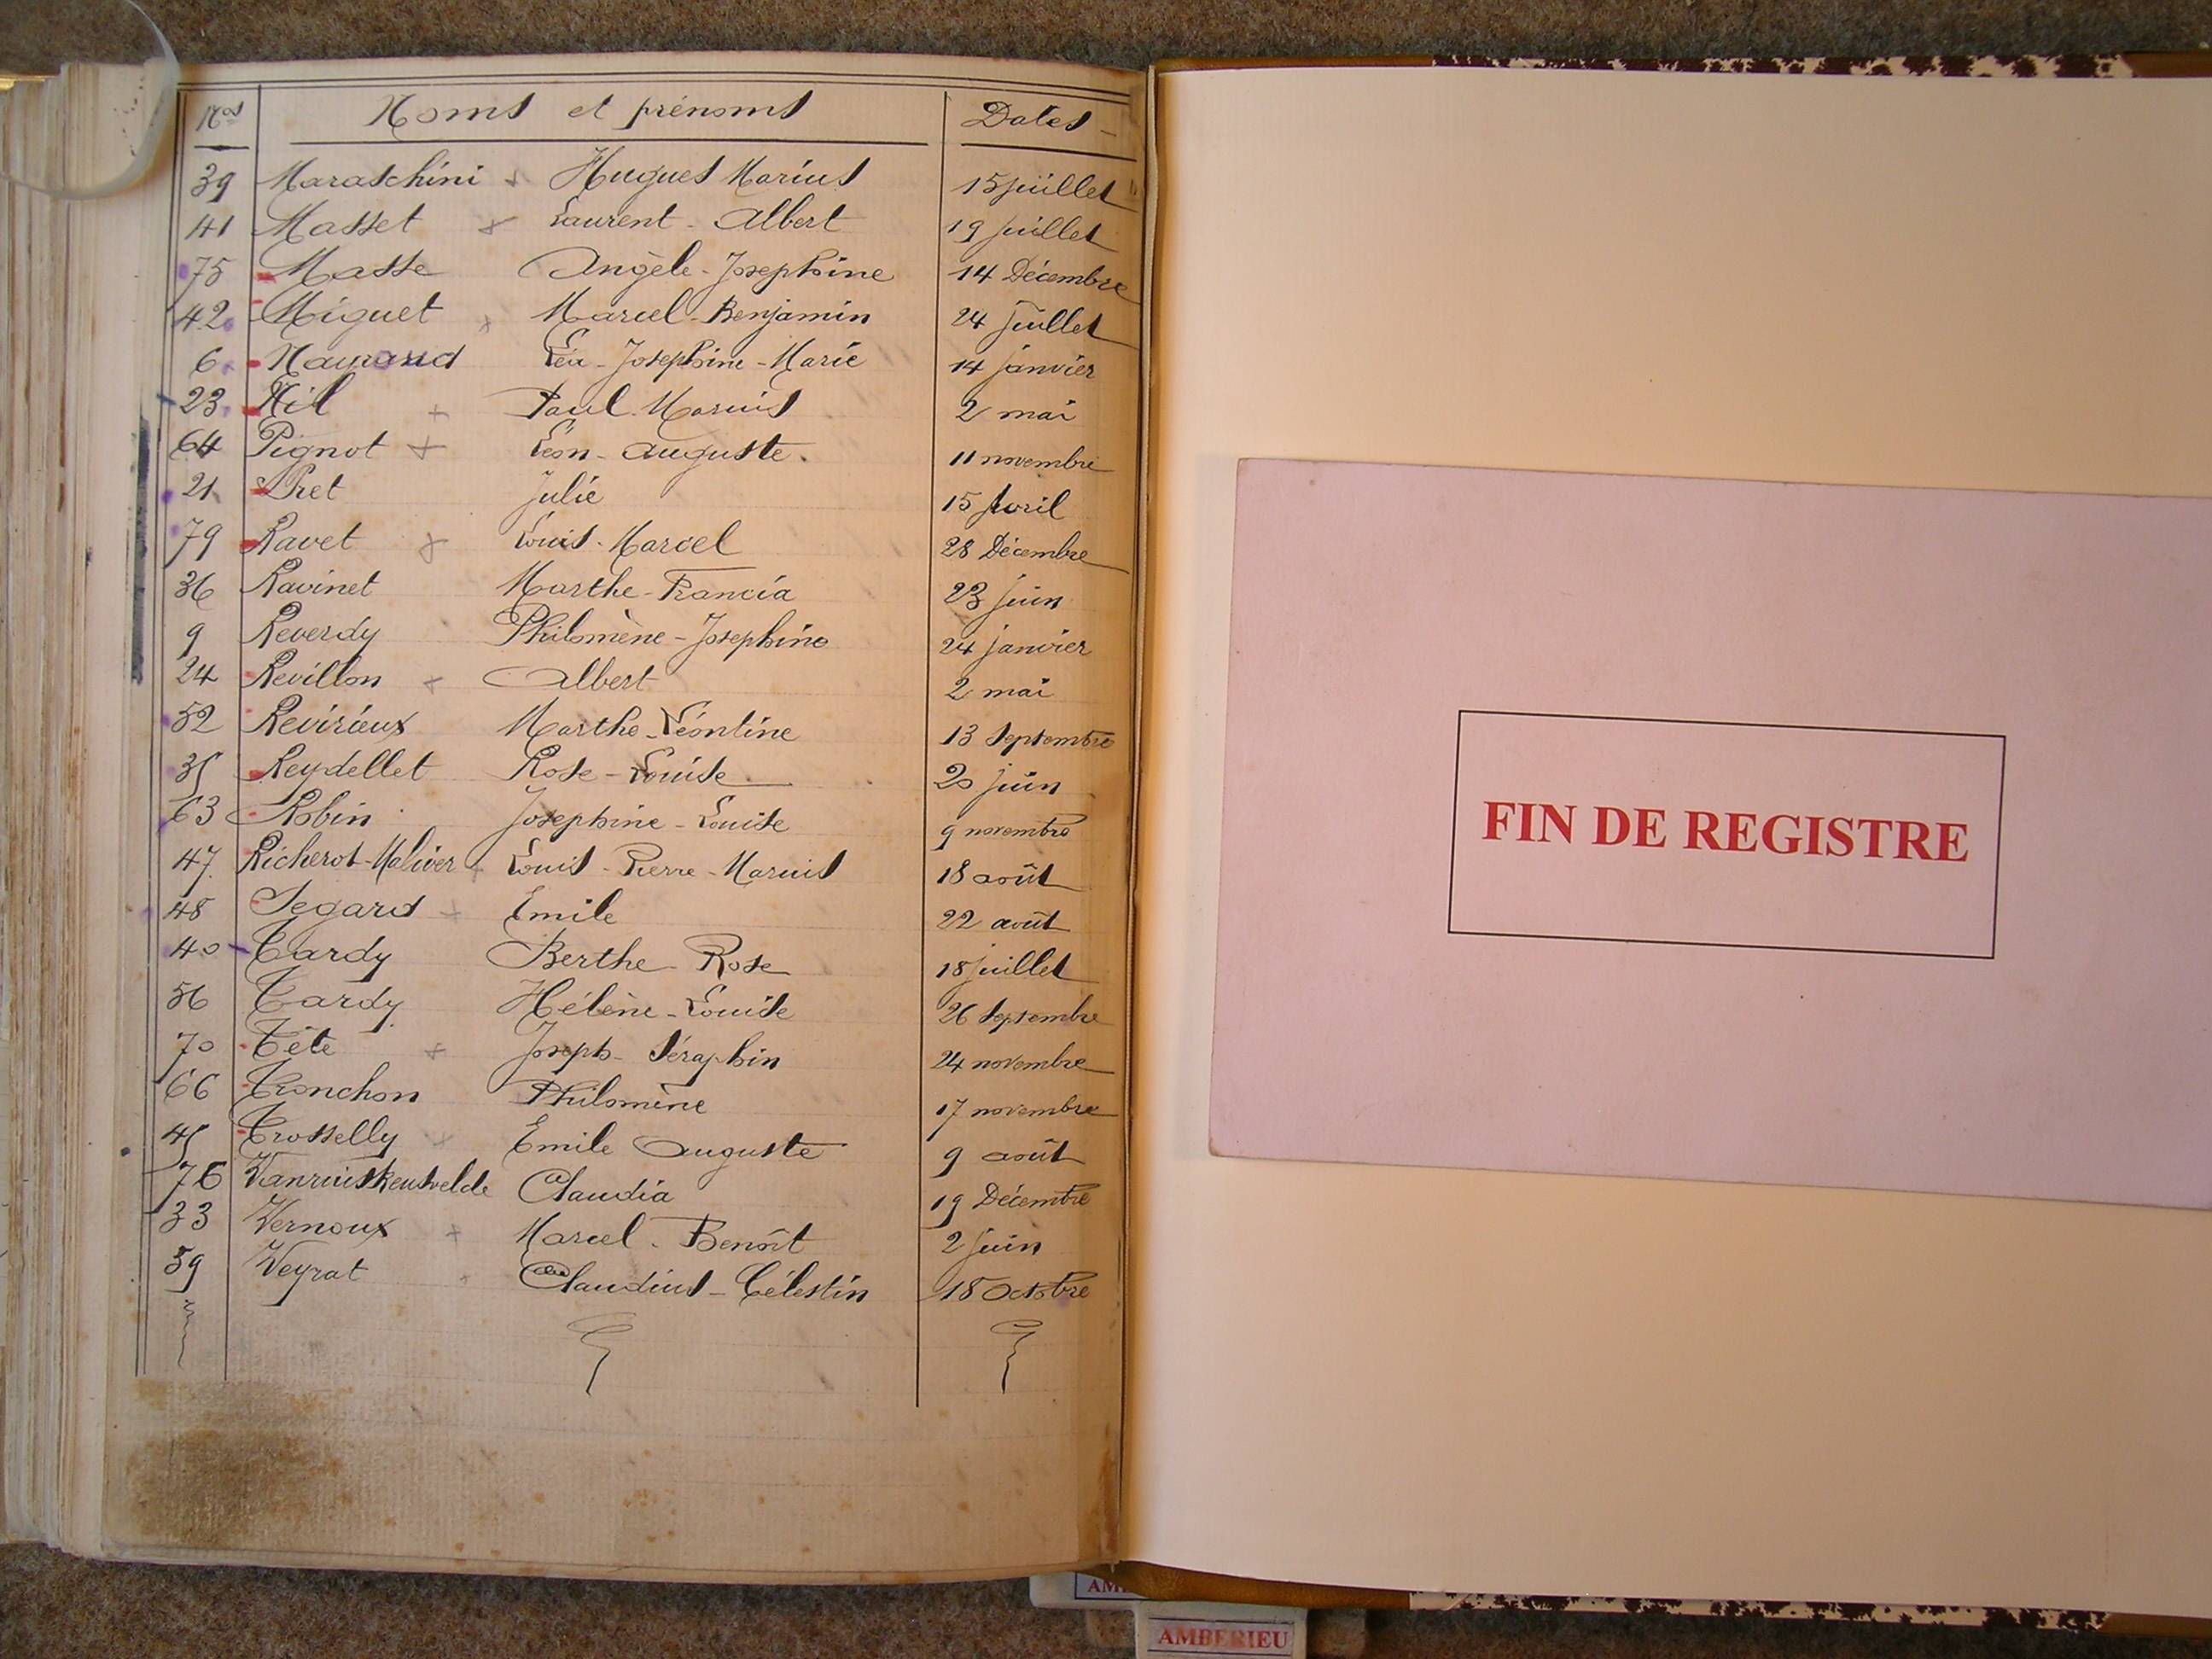 Nos Noms et prénoms Dates
39 Maraschini Hugues Marius 15 juillet
41 Masset Laurent - Albert 19 juillet
75 Masse Angèle - Josephine 14 Décembre
42 Miguet Marcel - Benjamin 24 juillet
6 Léa - Josephine - Marie 14 janvier
23 Nil Paul Marius 2 mai
64 Pignot Léon - Auguste. 11 novembre
21 Pret Julie 15 Avril
79 Ravet Louis - Marcel 28 Décembre
36 Ravinet Marthe - Francia 23 juin
9 Reverdy Philomène - Josephine 24 janvier
24 Revillon Albert 2 mai
52 Revirieux Marthe - Léontine 13 Septembre
35 Reydellet Rose - Louise 20 juin
63 Robin Josephine - Louise 9 novembre
47 Richerot-Maliver Louis - Pierre - Marius 18 août
48 Segard Emile 22 août
40 Tardy Berthe - Rose 18 juillet
56 Tardy Hélène - Louise 26 Septembre
70 Tête Joseph - Séraphin 24 novembre
66 Tronchon Philomène 17 novembre
45 Trosselly Emile Auguste 9 août
76 Claudia 19 Décembre
33 Vernoux Marcel - Benoît 2 juin
59 Veyrat Claudius - Célestin 18 Octobre
FIN DE REGISTRE
AM
AMBERIEU